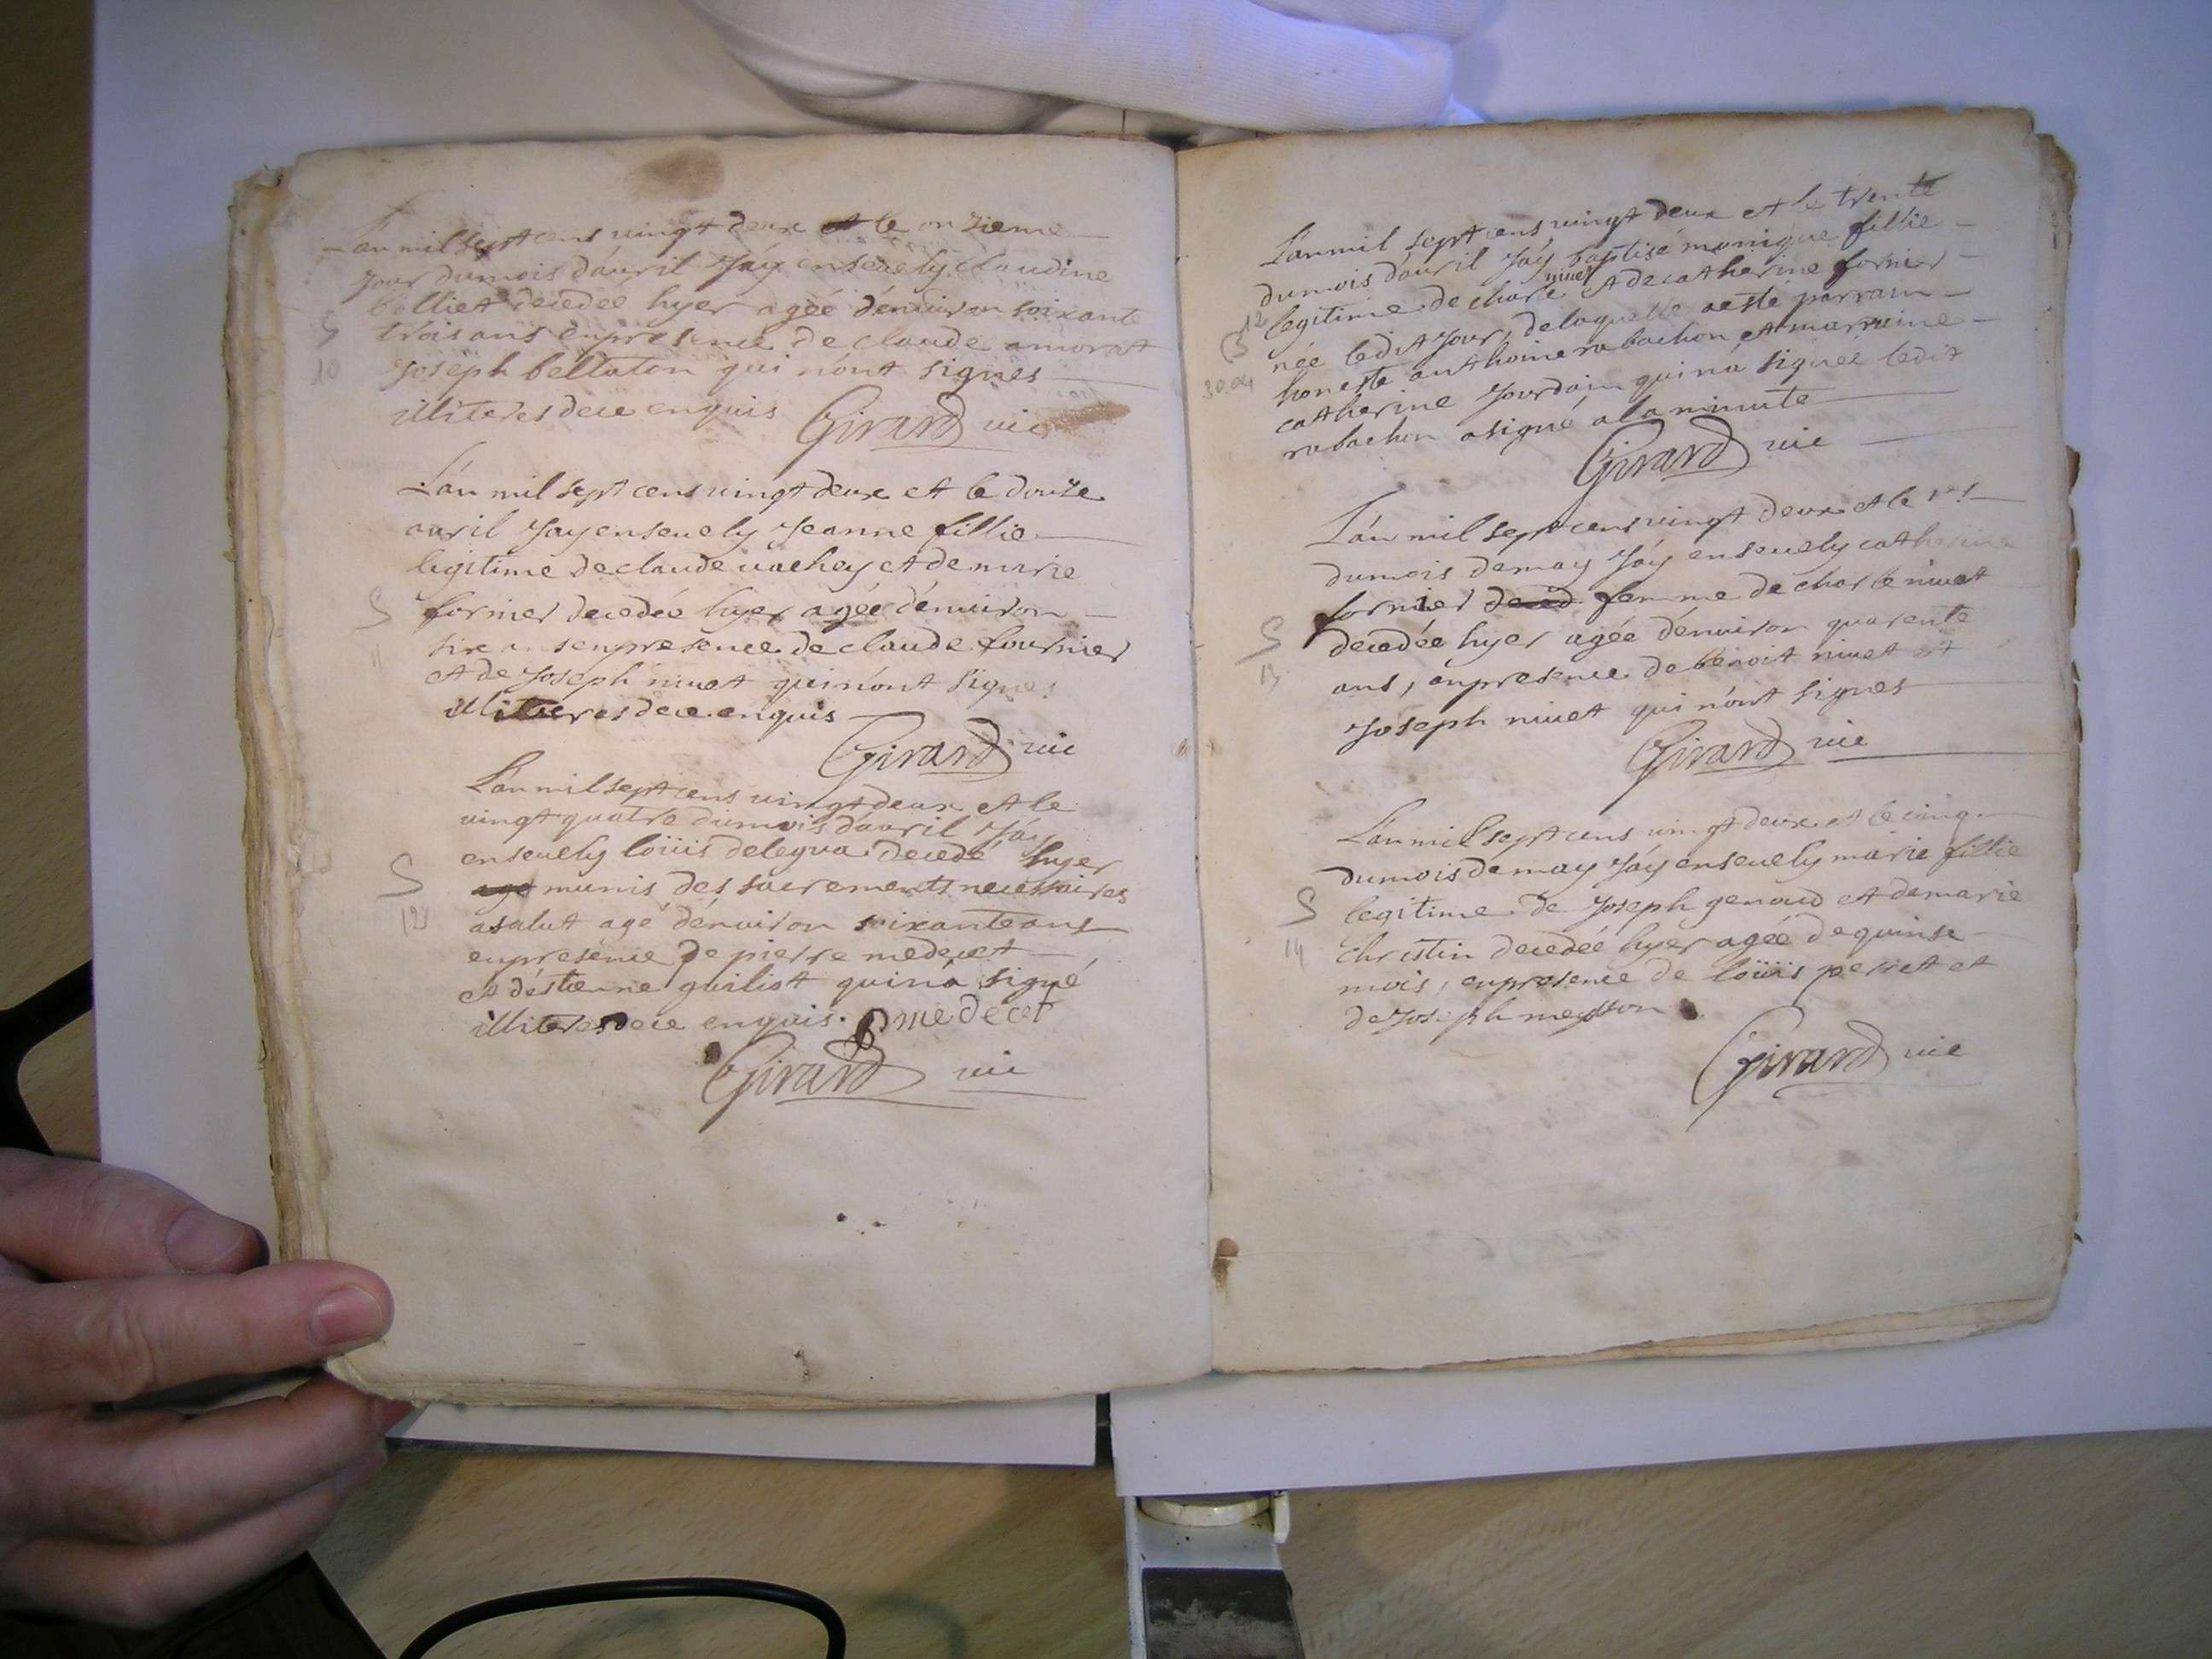 L'an mil sept cens vingt deux et le onzieme
jour du mois d'auril j'ay enseuely claudine
bolliet decedée hyer agée d'enuiron soixante
S trois ans en presence de claude amorat
10 joseph bellaton qui n'ont signés
illiteres de ce enquis Girard uic
L'an mil sept cens uingt deux et le douze
auril j'ay enseuely jeanne fillie
legitime de claude uachey et de marie
S fornier decedée hyer agée d'enuiron
11 six ans en presence de claude fournier
et de joseph niuet qui n'ont signes
illiteres de ce enquis
Girard uic
L'an mil sept cens uingt deux et le
uingt quatre du mois d'auril j'ay
enseuely loüis delegua decedé hyer
S agé munis des sacrements necessaires
12 a salut agé d'enuiron soixante ans
en presence de pierre medecet
et d'éstienne guiliot qui n'a signé
illiteres de ce enquis. P medecet
Girard uic
L'an mil sept cens uingt deux et le trente
du mois d'auril j'ay baptisé monique fillie
legitime de charle niuet et de catherine fornier
12 B née ledit jour, de laquelle a esté parrain
30.04 honeste anthoine rabachon et marraine
catherine jourdain qui n'a signée ledit
rabachon a signé a la minute
Girard uic
L'an mil sept cens uingt deux et le 1er
du mois de may j'ay enseuely catherine
fornier deced. femme de charle niuet
S decedée hyer agée d'enuiron quarente
13 ans, en presence de benoit niuet et
joseph niuet qui n'ont signes
Girard uic
L'an mil sept cens uingt deux et le cinq
du mois de may j'ay enseuely marie fillie
S legitime de joseph genoud et de marie
14 christin decedée hyer agée de quinse
mois, en presence de loüis perret et
de joseph meysson
Girard uic